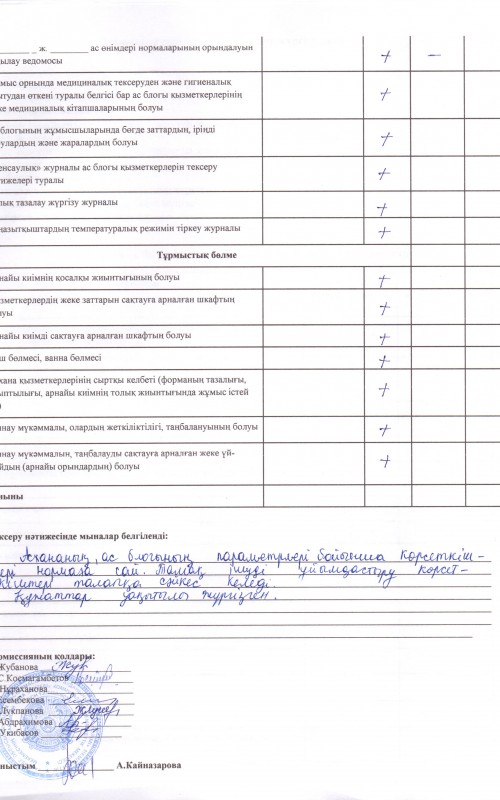 _ ж. ас өнімдері нормаларының орындалуын
ылау ведомосы + –
мыс орнында медициналық тексеруден және гигиеналық
ытудан өткені туралы белгісі бар ас блогы қызметкерлерінің
ке медициналық кітапшаларының болуы +
блогының жұмысшыларында бөгде заттардың, іріңді
рулардың және жаралардың болуы +
енсаулық» журналы ас блогы қызметкерлерін тексеру
тижелері туралы +
лық тазалау жүргізу журналы +
ңазытқыштардың температуралық режимін тіркеу журналы +
Тұрмыстық бөлме
рнайы киімнің қосалқы жиынтығының болуы +
ызметкерлердің жеке заттарын сақтауға арналған шкафтың
луы +
рнайы киімді сақтауға арналған шкафтың болуы +
ш бөлмесі, ванна бөлмесі +
хана қызметкерлерінің сыртқы келбеті (форманың тазалығы,
ыптылығы, арнайы киімнің толық жиынтығында жұмыс істей
) +
инау мүкәммалы, олардың жеткіліктілігі, таңбалануының болуы +
инау мүкәммалын, таңбалауды сақтауға арналған жеке үй-
йдың (арнайы орындардың) болуы +
ыныны
ксеру нәтижесінде мыналар белгіленді:
Асхананың, ас блогының параметрлері бойынша көрсеткіш –
ері нормаға сай. Тамақ ішуді ұйымдастыру көрсет –
кіштері талапқа сәйкес келеді.
Құжаттар уақытылы жүргізген.
омиссияның қолдары:
Жубанова
С.Космагамбетов
Нұраханова
сембекова
Лукпанова
Абдрахимова
Укибасов
ныстым А.Кайназарова